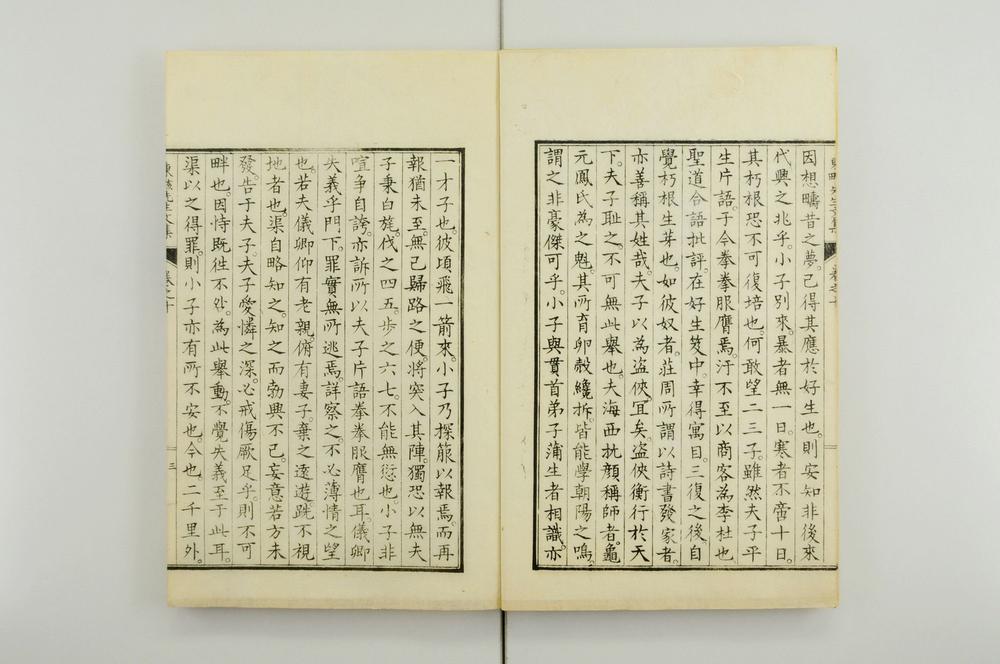 因想疇昔之夢。已得其應於好生也。則安知非後來
代興之兆乎。小子別來。暴者無一日。寒者不啻十日。
其朽根恐不可復培也。何敢望二三子。雖然夫子平
生片語。于今拳拳服膺焉。汙不至以商客為李杜也
聖道合語批評。在好生笈中。幸得寓目。三復之後。自
覺朽根生芽也。如彼奴者。莊周所謂以詩書發冢者。
亦善稱其姓哉。夫子以為盜俠。冝矣。盜俠衡行於天
下。夫子耻之。不可無此舉也。夫海西抗顏稱師者。龜
元鳳氏為之魁。其所育卵㲉纔拆。皆能學朝陽之鳴。
謂之非豪傑可乎。小子與貫首弟子蒲生者相識。亦
一才子也。彼頃飛一箭來。小子乃探箙以報焉。而再
報猶未至。無已歸路之便。將突入其陣。獨恐以無夫
子秉白旄。伐之四五。步之六七。不能無愆也。小子非
喧争自誇。亦訴所以夫子片語拳拳服膺也耳。儀卿
失義乎門下。罪實無所逃焉。詳察之。不必薄情之望
也。若夫儀卿仰有老親。俯有妻子。棄之遠遊。跣不視
地者也。渠自略知之。知之而勃興不已。妄意若方未
發。告于夫子。夫子愛憐之深。必戒傷厥足乎。則不可
畔也。因恃既徃不咎。為此舉動。不覺失義至于此耳。
渠以之得罪。則小子亦有所不安也。今也。二千里外。
卷之十
三